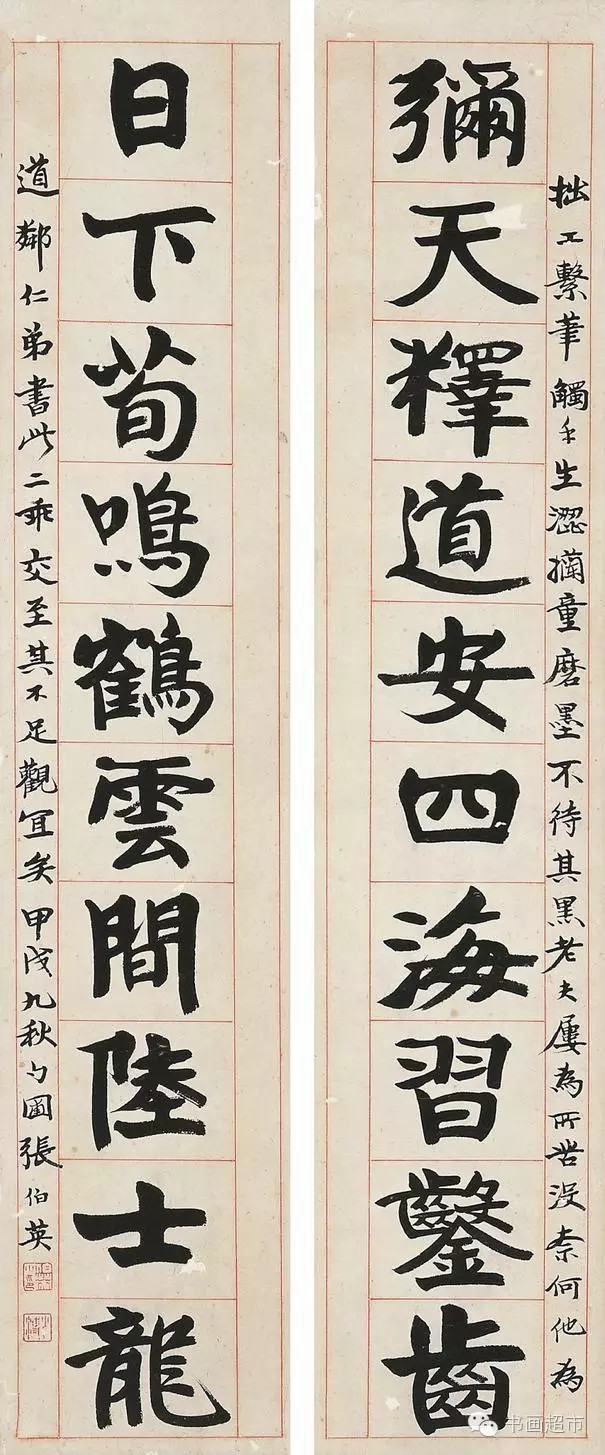 拙工繫筆觸手生澀童磨墨不待其黑老夫屢為所苦沒柰何他為
彌天釋道安四海習鑿齒
日下荀鳴鶴雲間陸士龍
道鄰仁弟書此二乖交至其不足觀宜矣甲戌九秋勺圃張伯英
书画超市